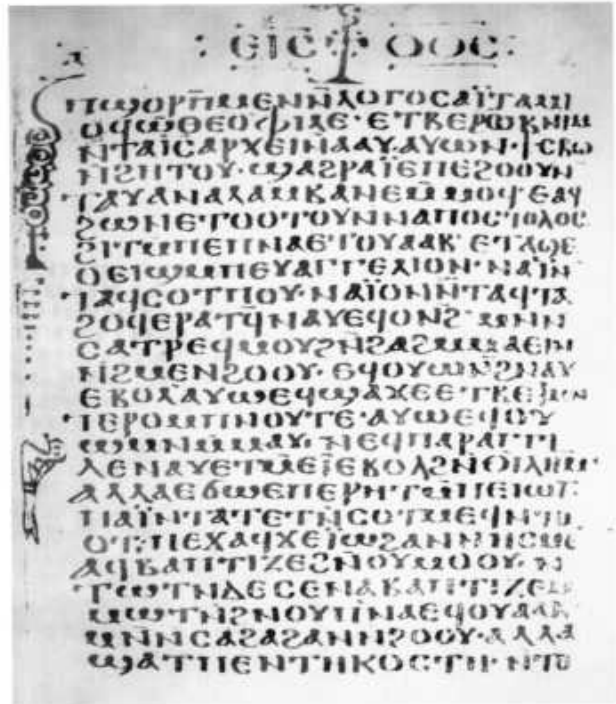 ⲁ ⲉⲓⲥ ⲑⲟⲥ
ⲡϣⲟⲣⲡ̄ⲙⲉⲛⲛ̄ⲗⲟⲅⲟⲥⲁⲓ̈ⲧⲁⲙⲓ
ⲟϥⲱ̄ⲑⲉⲟⲫⲓⲗⲉ·ⲉⲧⲃⲉϩⲱⲃⲛⲓⲙ
ⲛ̄ⲧⲁⲓ̈ⲥⲁⲣⲭⲉⲓⲛⲁⲁⲩ·ⲁⲩⲱⲛ·ϯⲥⲃⲱ
ⲛϩⲏⲧⲟⲩ·ϣⲁϩⲣⲁⲓ̈ⲉⲡⲉϩⲟⲟⲩⲛ
ⲧⲁⲩⲁⲛⲁⲗⲁⲙⲃⲁⲛⲉⲙ̄ⲙⲟϥⲉⲁϥ
ϩⲱⲛⲉⲧⲟⲟⲧⲟⲩⲛⲛⲁⲡⲟⲥⲧⲟⲗⲟⲥ
ϩⲓⲧⲙ̄ⲡⲉⲡⲛⲁⲉⲧⲟⲩⲁⲁⲃⲉⲧⲁϣⲉ
ⲟⲉⲓϣⲙⲡⲉⲩⲁⲅⲅⲉⲗⲓⲟⲛ·ⲛⲁⲓ̈ⲛ
ⲧⲁϥⲥⲟⲧⲡⲟⲩ·ⲛⲁⲓ̈ⲟⲛⲛ̄ⲧⲁϥⲧⲁ
ϩⲟϥⲉⲣⲁⲧϥⲛⲁⲩⲉϥⲟⲛϩ̄·ⲙⲛⲛ
ⲥⲁⲧⲣⲉϥⲙⲟⲩϩⲛ̄ϩⲁϩⲙⲙⲁⲉⲓⲛ
ⲛ̄ϩⲙⲉⲛϩⲟⲟⲩ·ⲉϥⲟⲩⲱⲛϩ̄ⲛⲁⲩ
ⲉⲃⲟⲗⲁⲩⲱⲉϥϣⲁϫⲉⲉⲧⲃⲉⲧⲙⲛ
ⲧⲉⲣⲟⲙⲡⲛⲟⲩⲧⲉ·ⲁⲩⲱⲉϥⲟⲩ
ⲱⲙⲛⲙ̄ⲙⲁⲩ·ⲛⲉϥⲡⲁⲣⲁⲅⲅⲓ
ⲗⲉⲛⲁⲩⲉⲧⲙ̄ⲉⲓ̈ⲉⲃⲟⲗϩⲛ̄ⲑⲓⲗⲏⲙ·
ⲁⲗⲗⲁⲉϭⲱⲉⲡⲉⲣⲏⲧⲙ̄ⲡⲉⲓⲱⲧ·
ⲡⲁⲓ̈ⲛⲧⲁⲧⲉⲧⲛ̄ⲥⲟⲧⲙⲉϥⲛⲧⲟ
ⲟⲧ·ⲡⲉϫⲁϥϫⲉⲓ̈ⲱϩⲁⲛⲛⲏⲥⲙⲉ
ⲁϥⲃⲁⲡⲧⲓⲍⲉϩⲛ̄ⲟⲩⲙⲟⲟⲩ·ⲛ
ⲧⲱⲧⲛⲇⲉⲥⲉⲛⲁⲃⲁⲡⲧⲓⲍⲉⲙ
ⲙⲱⲧⲛ̄ϩⲛⲟⲩⲡ̄ⲛⲁⲉϥⲟⲩⲁⲁⲃ
ⲙⲛⲛⲥⲁϩⲁϩⲁⲛⲛϩⲟⲟⲩ·ⲁⲗⲗⲁ
ϣⲁⲧⲡⲉⲛⲧⲏⲕⲟⲥⲧⲏ·ⲛⲧⲟ